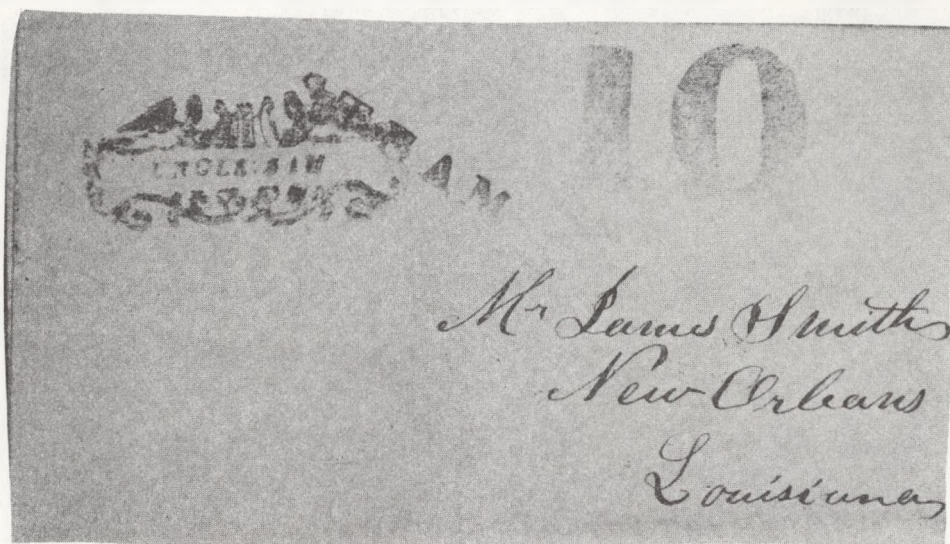 10
UNCLE SAM
Mr James Smith
New Orleans
Louisiana